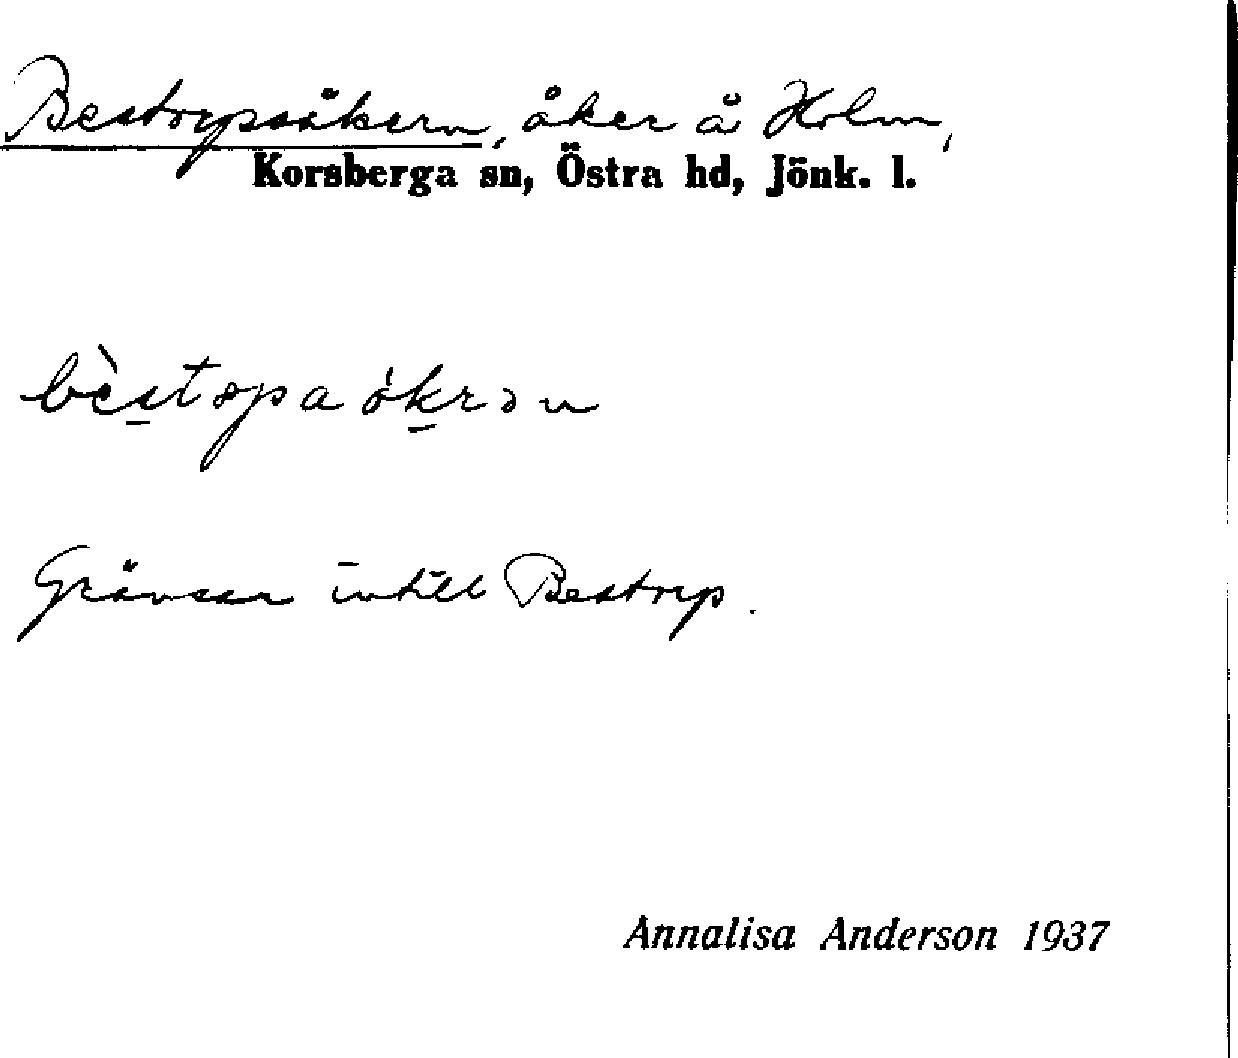 Bestorpsåkern, åker å Holm,
Korsberga sn, Östra hd, Jönk. l.
bèstɔpaókrən
Gränsar intill Bestorp.
Annalisa Anderson 1937